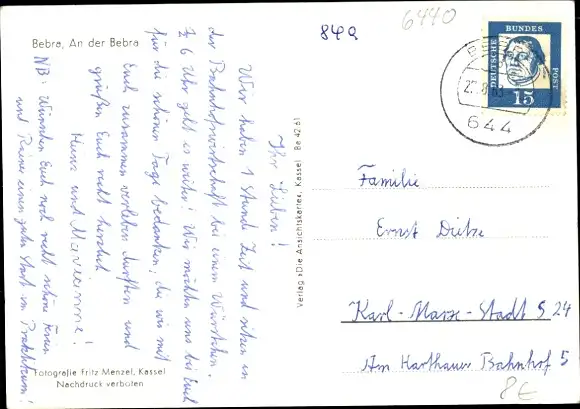 Bebra, An der Bebra
849
6440
DEUTSCHE
BUNDES
POST
15
644
Ihr Lieben!
Wir haben 1 Stunde Zeit und sitzen in
der Bahnhofswirtschaft bei einem Würstchen.
½ 6 Uhr geht es weiter! Wir möchten uns bei Euch
für die schönen Tage bedanken, die wir mit
Euch zusammen verleben durften und
grüßen Euch recht herzlich
Heinz und Marianne!
NB. Wünschen Euch noch recht schöne Ferien
und Rainer einen guten Start im Praktikum!
Fotografie Fritz Menzel, Kassel
Nachdruck verboten
Verlag »Die Ansichtskarte«, Kassel Be 42 61
Familie
Ernst Dietze
Karl-Marx-Stadt S 24
Am Harthauer Bahnhof 5
8€